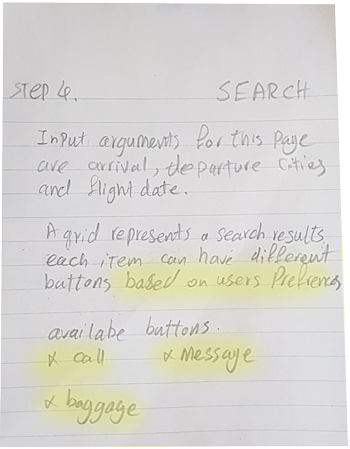 STEP 4. SEARCH
Input arguments for this page
are arrival, departure cities
and flight date.
A grid represents a search results
each item can have different
buttons based on users Prefrences
availabe buttons.
* call * Message
* baggage